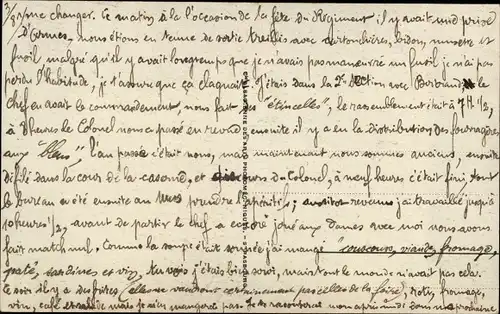 3/ me changer. Ce matin à l'occasion de la fête du Régiment il y avait une prise
d'armes, nous étions en tenue de sortie treillis avec cartouchières, bidon, musette et
fusil malgré qu'il y avait longtemps que je n'avais pas manœuvré un fusil je n'ai pas
perdu l'habitude, je t'assure que ça claquait. J'étais dans la 2e section avec Bertrand le
chef en avait le commandement, nous fait des "étincelles", le rassemblement était à 7h 1/2,
à 8 heures le Colonel nous a passé en revue ensuite il y a eu la distribution des fourragères
aux "bleus", l'an passé c'était nous, mais maintenant nous sommes anciens, ensuite
défilé dans la cour de la caserne, et discours du Colonel, à neuf heures c'était fini, tout
le bureau on été ensuite au mess prendre l'apéritif; revenus j'ai travaillé jusqu'à
10 heures 1/2, avant de partir le chef a encore joué aux dames avec moi nous avons
fait match nul. Comme la soupe était sucrée j'ai mangé "couscous, viande, fromage,
paté, sardines et vin, tu vois j'étais bien servi, mais tout le monde n'avait pas cela.
Ce soir il y a des frites (elles ne vaudront certainement pas celles de la foire), roti, fromage,
vin, café mais je n'en mangerai pas. Je te raconterai mon après-midi dans ma prochaine